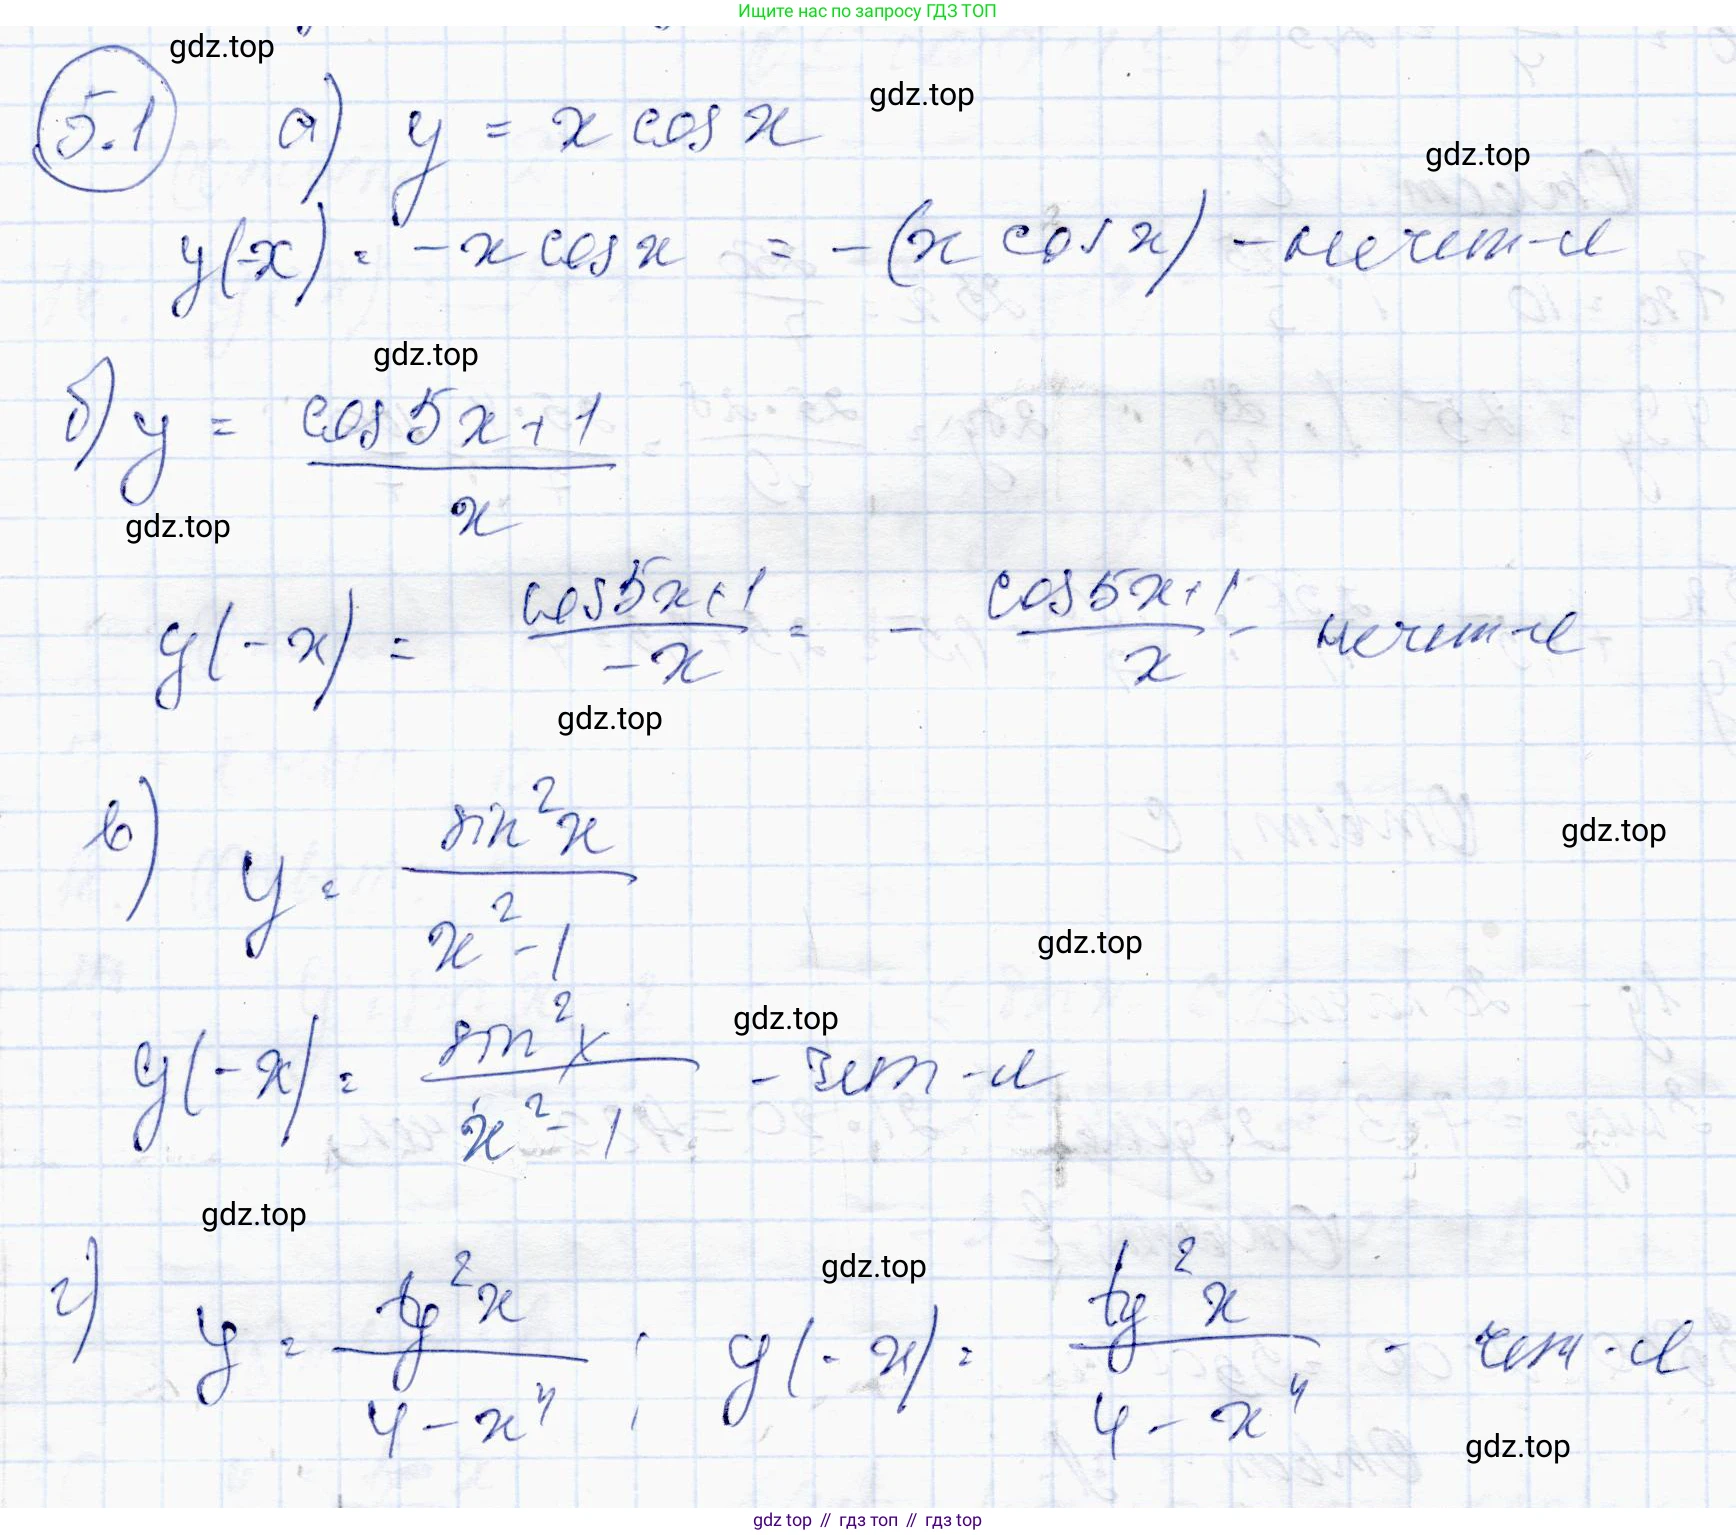 Ищите нас по запросу ГДЗ ТОП
gdz.top
gdz.top
5.1 а) y = x cos x
gdz.top
y(-x) = -x cos x = -(x cos x) - нечет-я
gdz.top
б) y = (cos 5x + 1)/x
gdz.top
y(-x) = (cos 5x + 1)/(-x) = - (cos 5x + 1)/x - нечет-я
gdz.top
в) y = sin²x/(x² - 1)
gdz.top
gdz.top
gdz.top
y(-x) = sin²x/(x² - 1) - чет-я
gdz.top
gdz.top
г) y = tg²x/(4 - x⁴) ; y(-x) = tg²x/(4 - x⁴) - чет-я
gdz.top
gdz top // гдз топ // гдз top